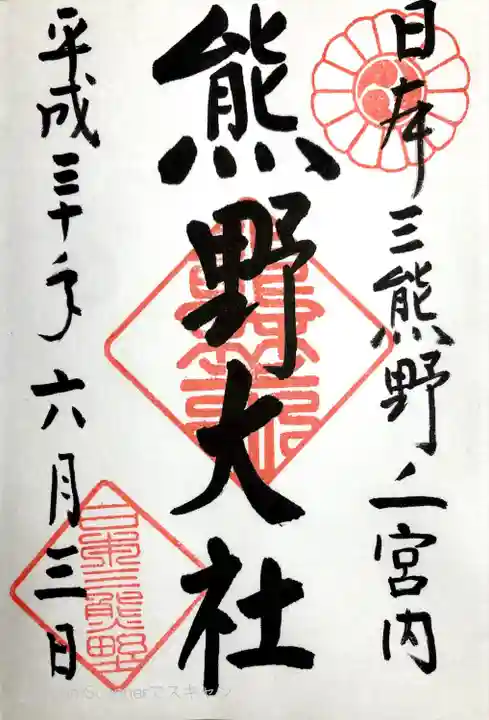 日本三熊野之宮内
熊野大社
平成三十年六月三日
日本三熊野
Scannerでスキャン